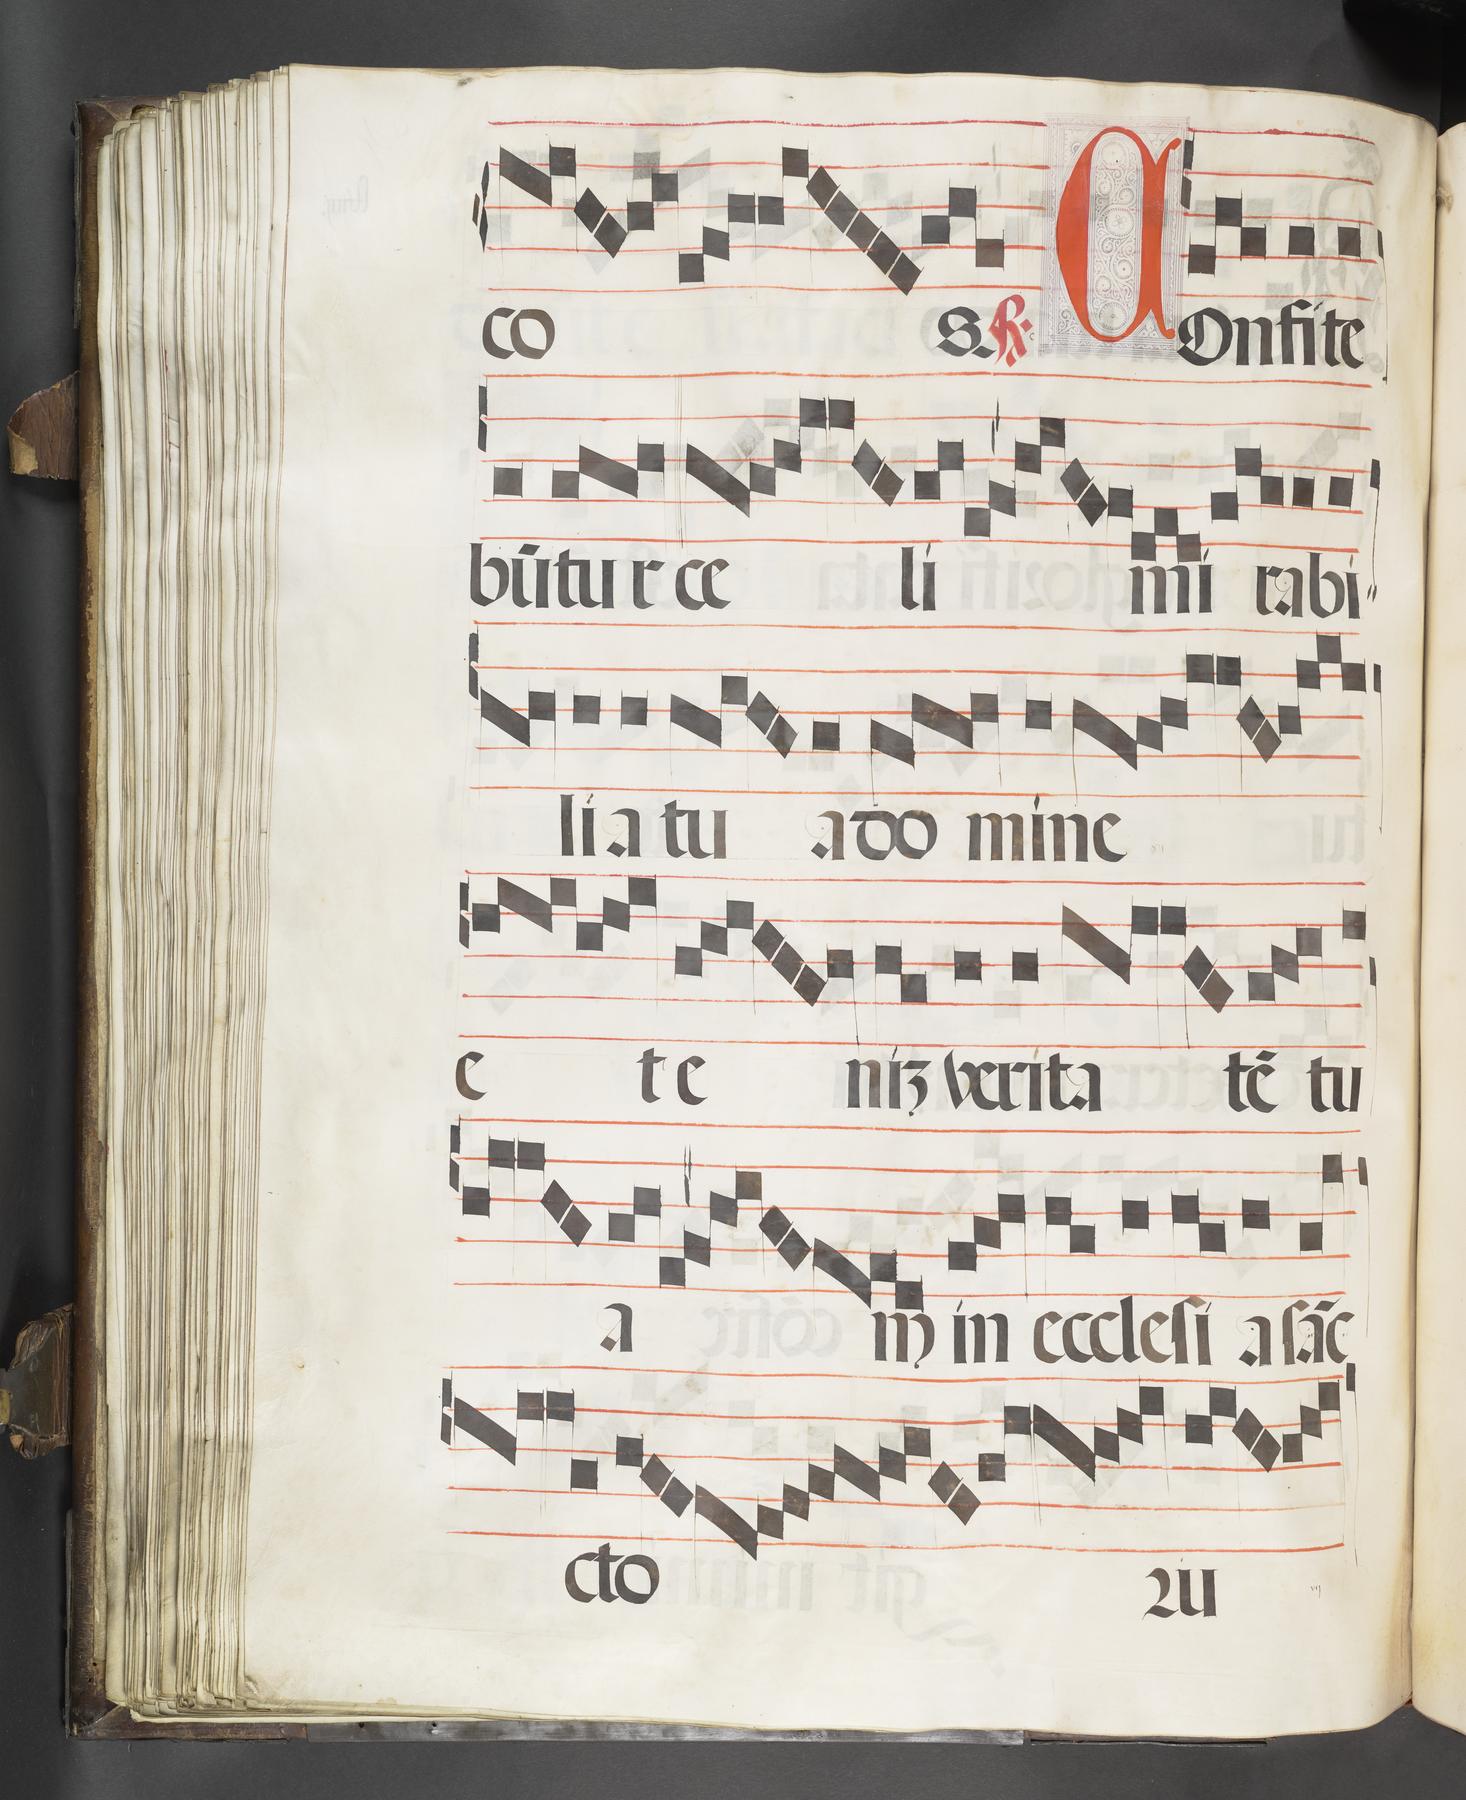 co s. R. COnfite
bũtur ce li mi rabi
lia tu a do mine
e te niʒ verita tẽ tu
a m in ecclesi a sãc
cto ꝛu